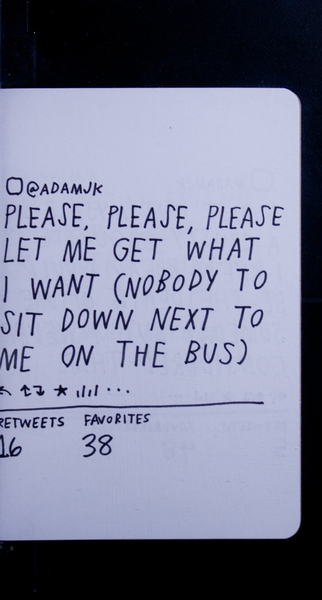 @ADAMJK
PLEASE, PLEASE, PLEASE
LET ME GET WHAT
I WANT (NOBODY TO
SIT DOWN NEXT TO
ME ON THE BUS)
RETWEETS FAVORITES
16 38